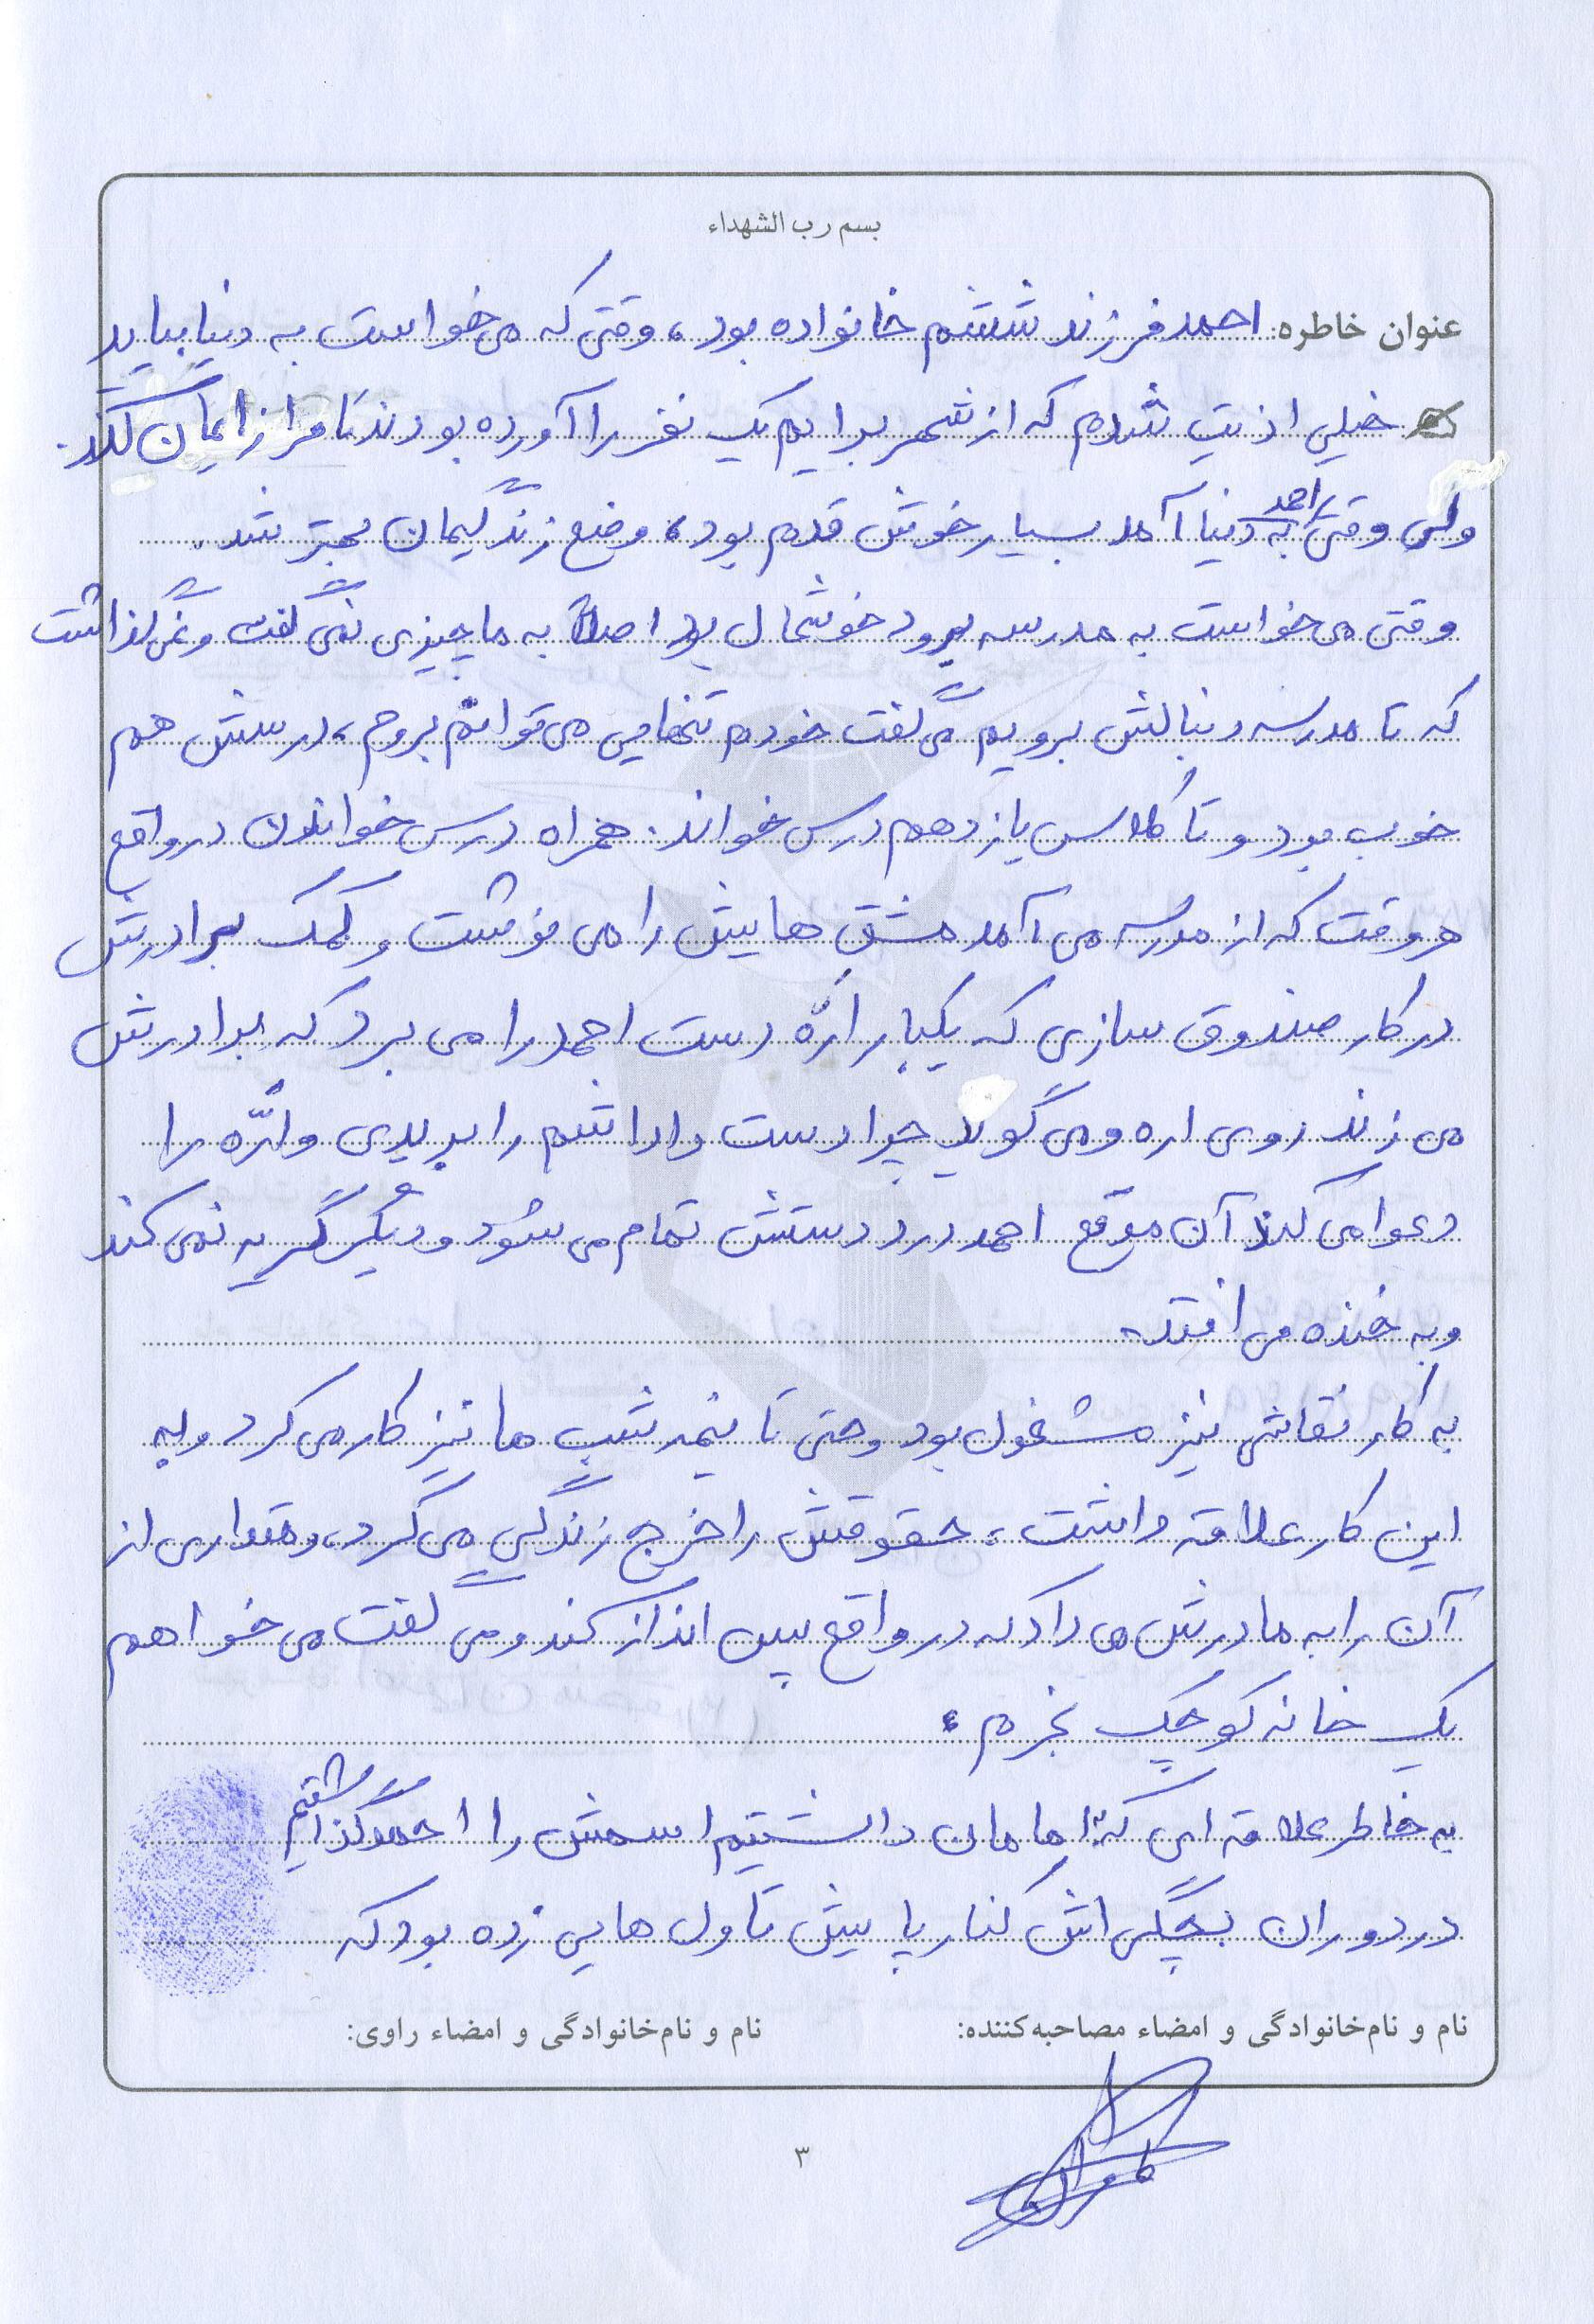 بسم رب الشهداء
عنوان خاطره: احمد فرزند ششم خانواده بود، وقتی که می خواست به دنیا بیاید
خیلی اذیت شدم که از شهر برایم یک نفر را آورده بودند تا مرا زایمان کند.
ولی وقتی احمد به دنیا آمد بسیار خوش قدم بود، وضع زندگیمان بهتر شد.
وقتی می خواست به مدرسه برود خوشحال بود اصلاً به ما چیزی نمی گفت و نمی گذاشت
که تا مدرسه دنبالش برویم می گفت خودم تنهایی می توانم بروم، درسش هم
خوب بود و تا کلاس یازدهم درس خواند. همراه درس خواندن در واقع
هر وقت که از مدرسه می آمد مشق هایش را می نوشت و کمک برادرش
در کار صندوق سازی که یکبار ارّه دست احمد را می برد که برادرش
می زند روی اره و می گوید چرا دست داداشم را بریدی و ارّه را
دعوا می کند آن موقع احمد درد دستش تمام می شود و دیگر گریه نمی کند
و به خنده می افتد.
به کار نقاشی نیز مشغول بود و حتی تا نیمه شب ها نیز کار می کرد و به
این کار علاقه داشت، حقوقش را خرج زندگی می کرد، و مقداری از
آن را به مادرش می داد که در واقع پس انداز کند و می گفت می خواهم
یک خانه کوچک بخرم.
به خاطر علاقه ای که به امامان داشتیم اسمش را احمد گذاشتیم
در دوران بچگی اش کنار پایش تاول هایی زده بود که
نام و نام‌خانوادگی و امضاء مصاحبه‌کننده:
نام و نام‌خانوادگی و امضاء راوی:
۳